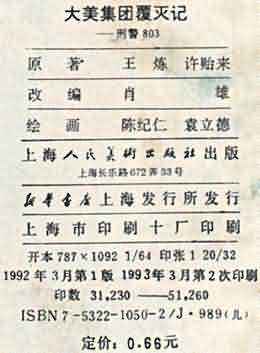 大美集团覆灭记
——刑警803
原著 王炼 许贻来
改编 肖雄
绘画 陈纪仁 袁立德
上海人民美術出版社出版
上海长乐路672弄33号
新華書店上海发行所发行
上海市印刷十厂印刷
开本787×1092 1/64 印张1 20/32
1992年3月第1版 1993年3月第2次印刷
印数 31,230——51,260
ISBN7-5322-1050-2/J·989(儿)
定价: 0.66元